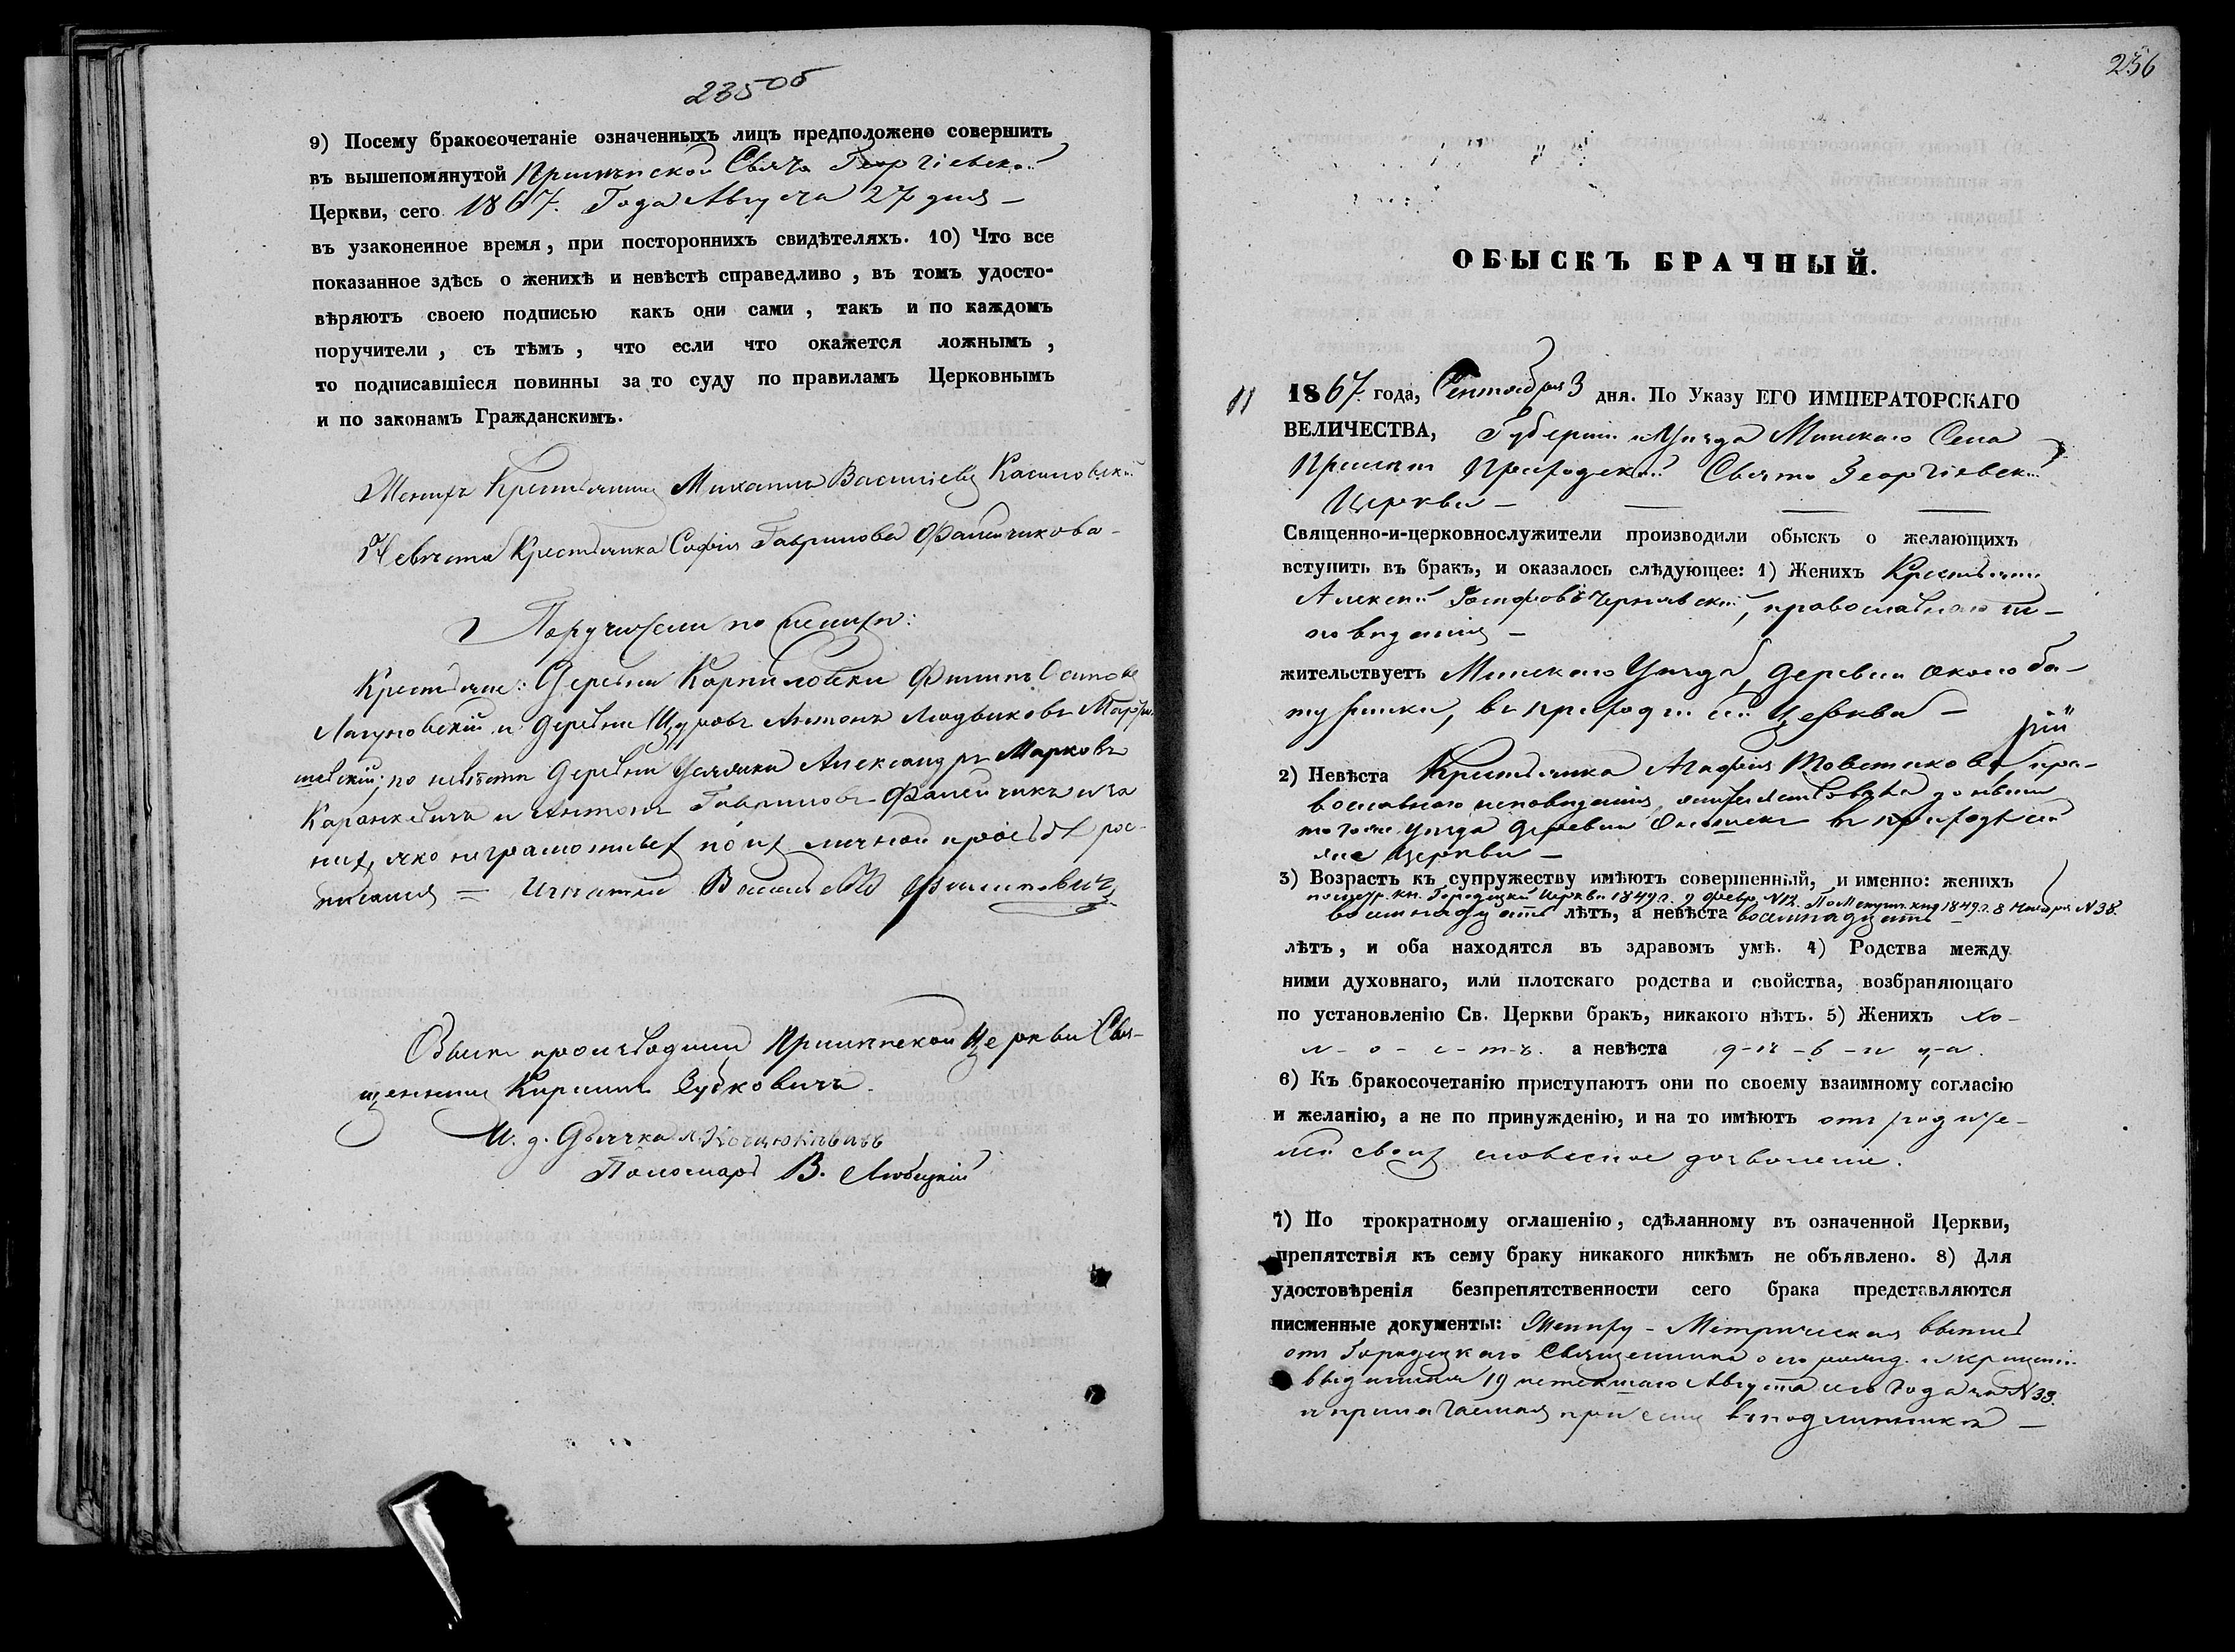 235об
9) Посему бракосочетаніе означенныхъ лицъ предположено совершить
въ вышепомянутой Прилѣпской Свято Георгіевской
Церкви, сего 1867. Года Августа 27 дня —
въ узаконенное время, при постороннихъ свидѣтеляхъ. 10) Что все
показанное здѣсь о женихѣ и невѣстѣ справедливо, въ томъ удосто-
вѣряютъ своею подписью какъ они сами, такъ и по каждомъ
поручители, съ тѣмъ, что если что окажется ложнымъ,
то подписавшіеся повинны за то суду по правиламъ Церковнымъ
и по законамъ Гражданскимъ.
Женихъ Крестьянинъ Михаилъ Василіевъ Касиловскій
Невѣста Крестьянка Софія Гаврилова Фалейчикова -
Поручители по женихѣ:
Крестьяне: Деревни Карпиловки Филипъ Осиповъ
Лагуновскій и деревни Антонъ Людвиковъ
шевскій; по невѣстѣ деревни Усяжки Александръ Марковъ
Каранкевичъ и Антонъ Гавриловъ Фалейчикъ и за
нихъ, яко неграмотныхъ по ихъ личной просьбѣ рос-
писался = Игнатій Филиповичъ
Обыскъ производили Прилѣпской Церкви Свя-
щенникъ Кирилъ
И. д. Дьячка
Пономарь В. Любецкій
236
ОБЫСКЪ БРАЧНЫЙ.
11 1867. года, Сентября 3 дня. По Указу ЕГО ИМПЕРАТОРСКАГО
ВЕЛИЧЕСТВА, Губерніи и Уѣзда Минскаго Села
Прилѣпъ Приходской Свято Георгіевской
Церкви —
Священно-и-церковнослужители производили обыскъ о желающихъ
вступить въ бракъ, и оказалось слѣдующее: 1) Женихъ Крестьянинъ
Алексѣй Чернявскій, православнаго ис-
повѣданія —
жительствуетъ Минскаго Уѣзда, деревни
въ приходѣ сей Церкви —
2) Невѣста Крестьянка Агафія пра-
вославнаго исповѣданія, жительствовала донынѣ
того же уѣзда деревни въ приходѣ сей
же Церкви —
3) Возрастъ къ супружеству имѣютъ совершенный, и именно: женихъ
по метр. кн. Городецкой Церкви 1849 г. 9 Февр. N 12. 1849 г. 8 N 38.
восемнадцать лѣтъ, а невѣста восемнадцать —
лѣтъ, и оба находятся въ здравомъ умѣ. 4) Родства между
ними духовнаго, или плотскаго родства и свойства, возбраняющаго
по установленію Св. Церкви бракъ, никакого нѣтъ. 5) Женихъ хо-
л-о-с-т-ъ. а невѣста д-ѣ-в-и-ц-а.
6) Къ бракосочетанію приступаютъ они по своему взаимному согласію
и желанію, а не по принужденію, и на то имѣютъ отъ родите-
лей своихъ словесное дозволеніе.
7) По трократному оглашенію, сдѣланному въ означенной Церкви,
препятствія къ сему браку никакого никѣмъ не объявлено. 8) Для
удостовѣренія безпрепятственности сего брака представляются
писменные документы: Жениху - Метрическая выпись
отъ Городецкаго Священника о его рожд. и крещеніи
выданная 19 истекшаго Августа сего года за N 39.
и прилагаемая при семъ въ подлинникѣ —